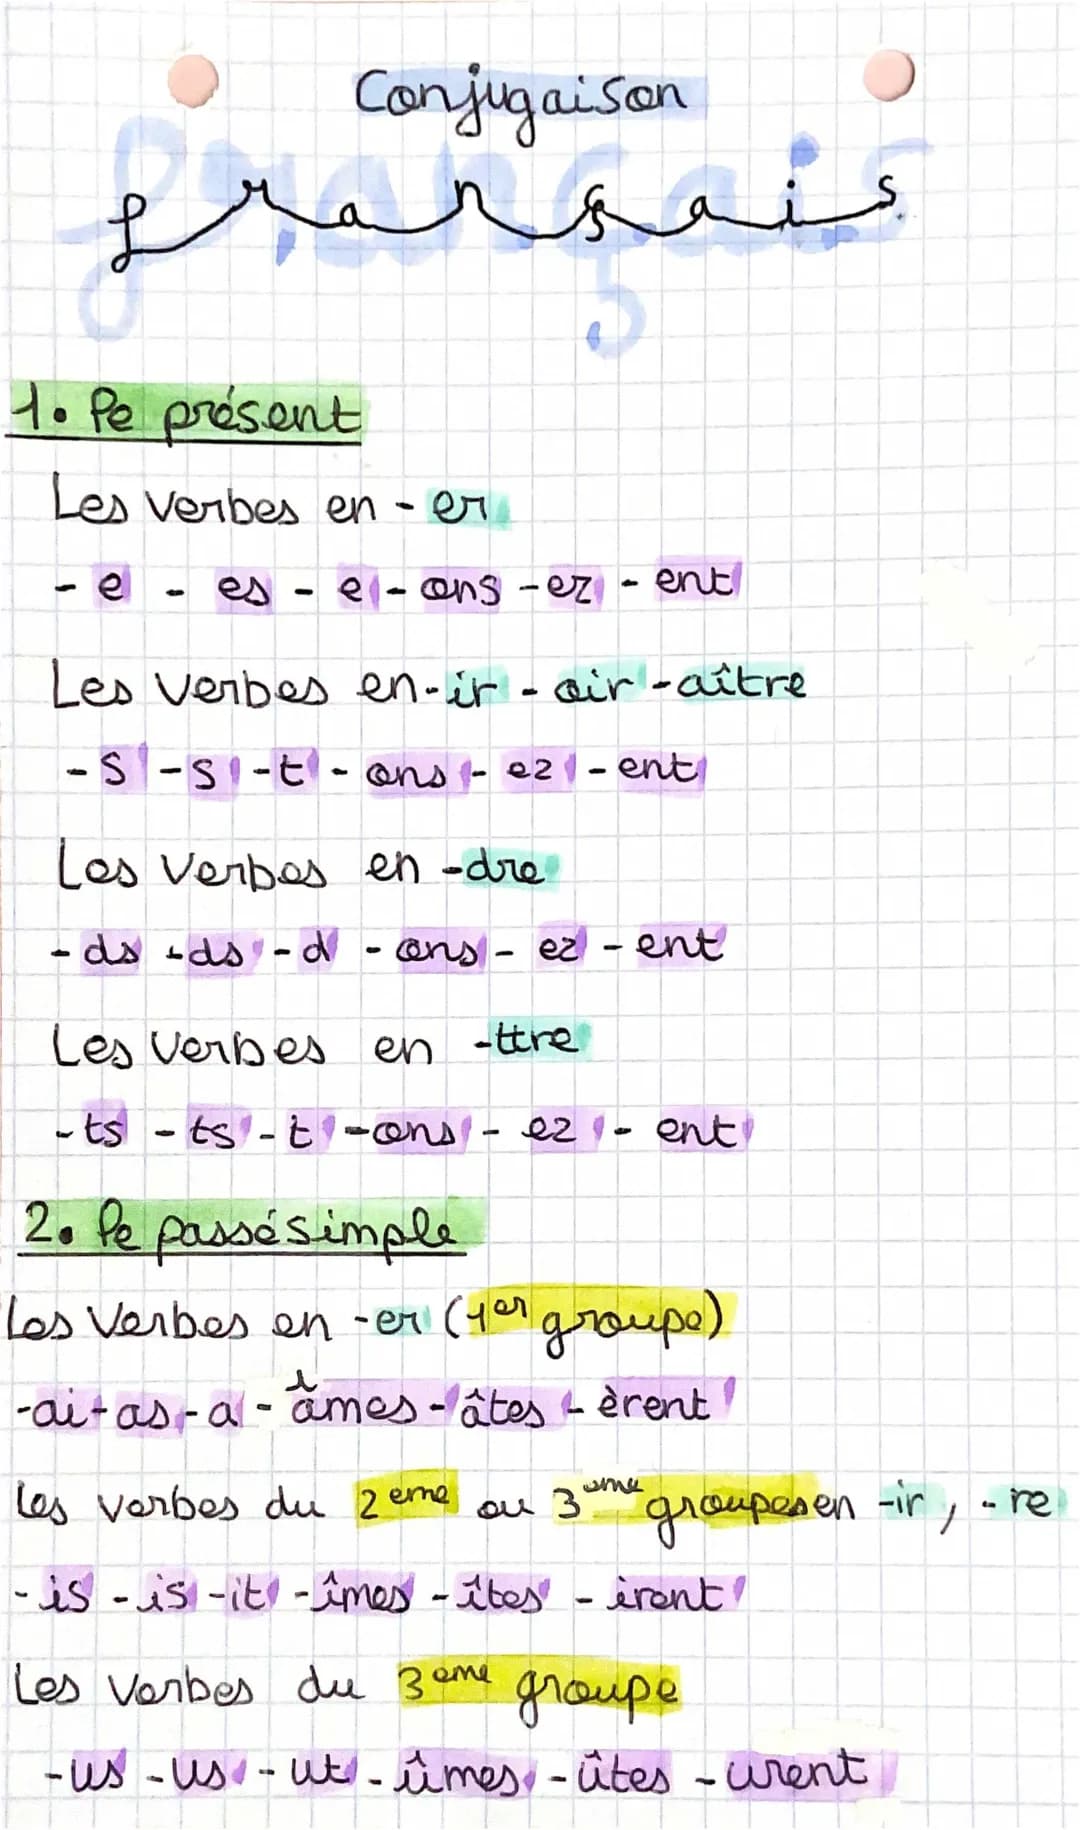 Conjugaison
français
1. Le présent
Les verbes en - er
- e - es - e - ons - ez - ent
Les verbes en - ir - oir - aître
- s - s - t - ons - ez - ent
Les verbes en - dre
- ds - ds - d - ons - ez - ent
Les verbes en - ttre
- ts - ts - t - ons - ez - ent
2. Le passé simple
Les verbes en - er (1er groupe)
- ai - as - a - âmes - âtes - èrent
Les verbes du 2eme ou 3eme groupes en - ir, - re
- is - is - it - îmes - îtes - irent
Les verbes du 3eme groupe
- us - us - ut - ûmes - ûtes - urent